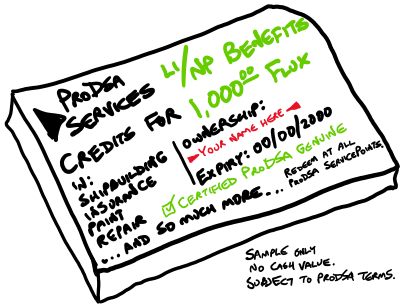 ProDSA LI/NP BENEFITS
SERVICES
CREDITS FOR 1,000.00 FLUX
IN:
SHIPBUILDING
INSURANCE
PAINT
REPAIR
... AND SO MUCH MORE...
OWNERSHIP:
YOUR NAME HERE
EXPIRY: 00/00/2000
CERTIFIED PRODSA GENUINE
REDEEM AT ALL
PRODSA SERVICEPOINTS.
SAMPLE ONLY
NO CASH VALUE.
SUBJECT TO PRODSA TERMS.